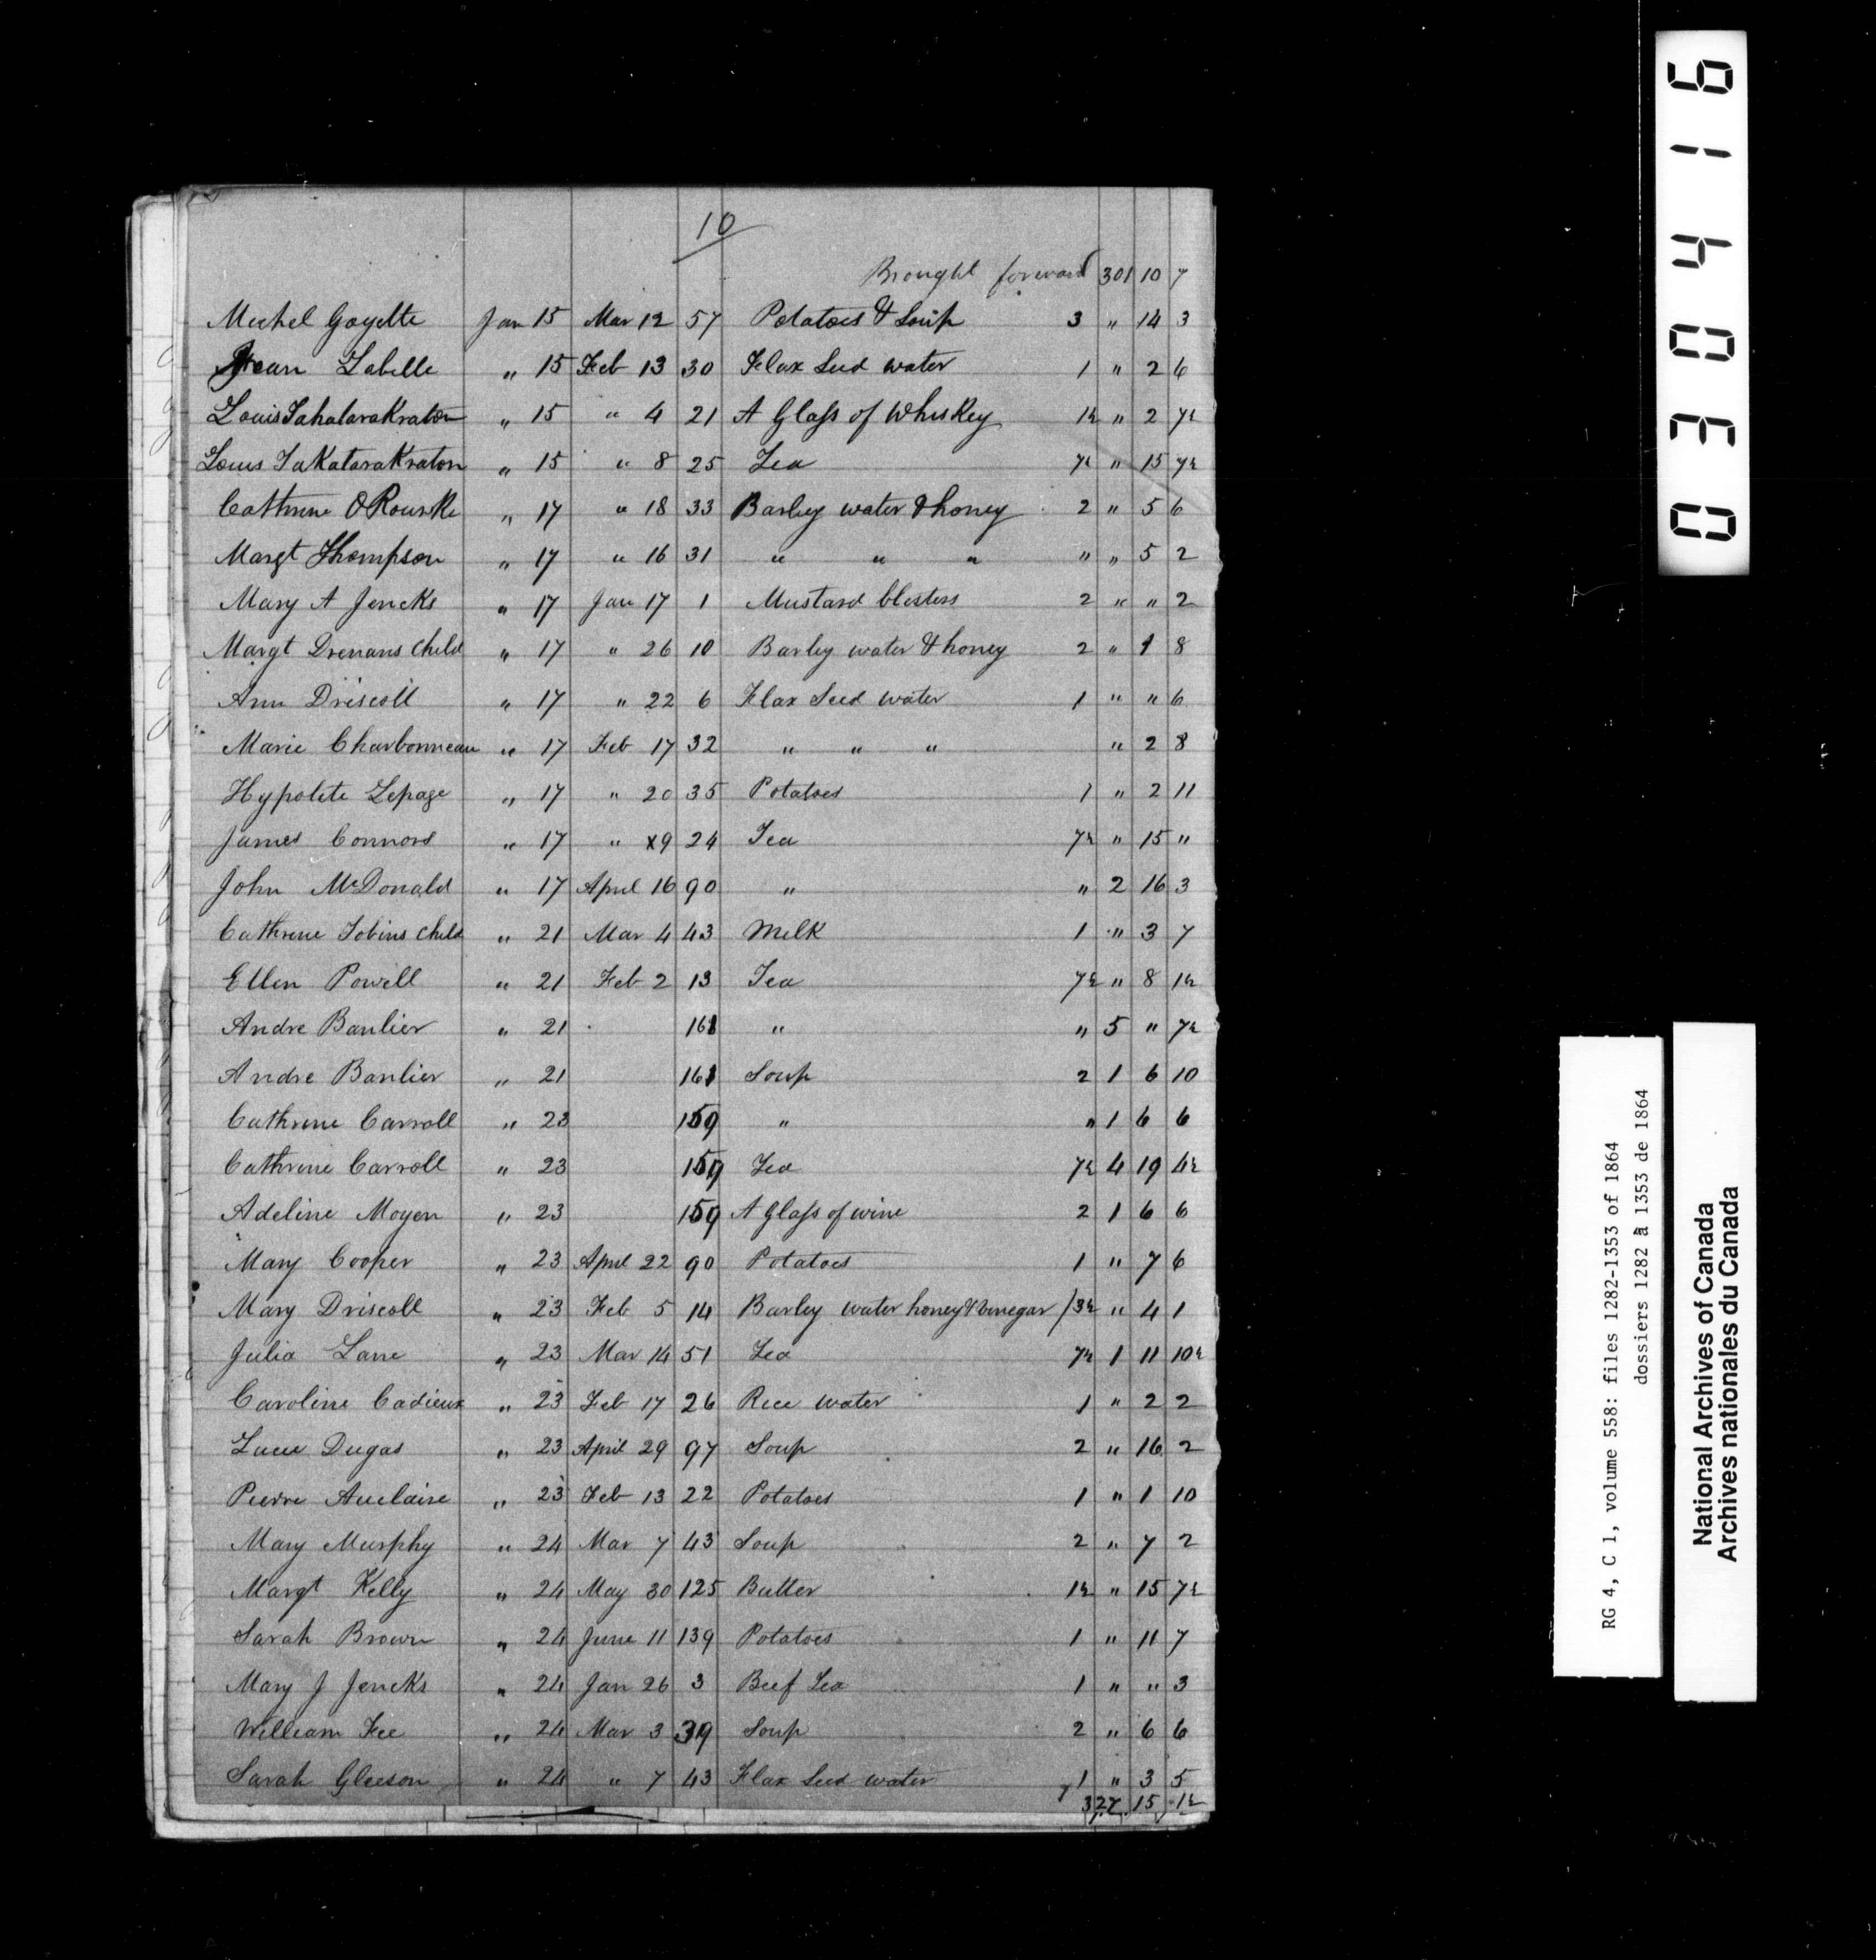 10
Brought forward 301 10 7
Michel Goyette Jan 15 Mar 12 57 Potatoes & Soup 3 " 14 3
Jean Labelle " 15 Feb 13 30 Flax Seed water 1 " 2 6
Louis SahataraKraton " 15 " 4 21 A Glass of Whiskey 1½ " 2 7½
Louis SaKataraKraton " 15 " 8 25 Tea 7½ " 15 7½
Cathrine O Rourke " 17 " 18 33 Barley water & honey 2 " 5 6
Margt Thompson " 17 " 16 31 " " " " " 5 2
Mary A Jencks " 17 Jan 17 1 Mustard blisters 2 " " 2
Margt Drenans Child " 17 " 26 10 Barley water & honey 2 " 1 8
Ann Driscoll " 17 " 22 6 Flax Seed water 1 " " 6
Marie Charbonneau " 17 Feb 17 32 " " " " 2 8
Hypolite Lepage " 17 " 20 35 Potatoes 1 " 2 11
James Connors " 17 " 9 24 Tea 7½ " 15 "
John McDonald " 17 April 16 90 " " 2 16 3
Cathrine Tobins Child " 21 Mar 4 43 Milk 1 " 3 7
Ellen Powell " 21 Feb 2 13 Tea 7½ " 8 1½
Andre Banlier " 21 161 " " 5 " 7½
Andre Banlier " 21 161 Soup 2 1 6 10
Cathrine Carroll " 23 159 " " 1 6 6
Cathrine Carroll " 23 159 Tea 7½ 4 19 4½
Adeline Moyen " 23 159 A Glass of wine 2 1 6 6
Mary Cooper " 23 April 22 90 Potatoes 1 " 7 6
Mary Driscoll " 23 Feb 5 14 Barley water honey & vinegar /3½ " 4 1
Julia Lane " 23 Mar 14 51 Tea 7½ 1 11 10½
Caroline Cadieux " 23 Feb 17 26 Rice water 1 " 2 2
Luce Dugas " 23 April 29 97 Soup 2 " 16 2
Pierre Auclaire " 23 Feb 13 22 Potatoes 1 " 1 10
Mary Murphy " 24 Mar 7 43 Soup 2 " 7 2
Margt Kelly " 24 May 30 125 Butter 1½ " 15 7½
Sarah Brown " 24 June 11 139 Potatoes 1 " 11 7
Mary J Jencks " 24 Jan 26 3 Beef Tea 1 " " 3
William Fee " 24 Mar 3 39 Soup 2 " 6 6
Sarah Gleeson " 24 " 7 43 Flax Seed water 1 " 3 5
327 15 1½
030416
RG 4, C 1, volume 558: files 1282-1353 of 1864
dossiers 1282 à 1353 de 1864
National Archives of Canada
Archives nationales du Canada